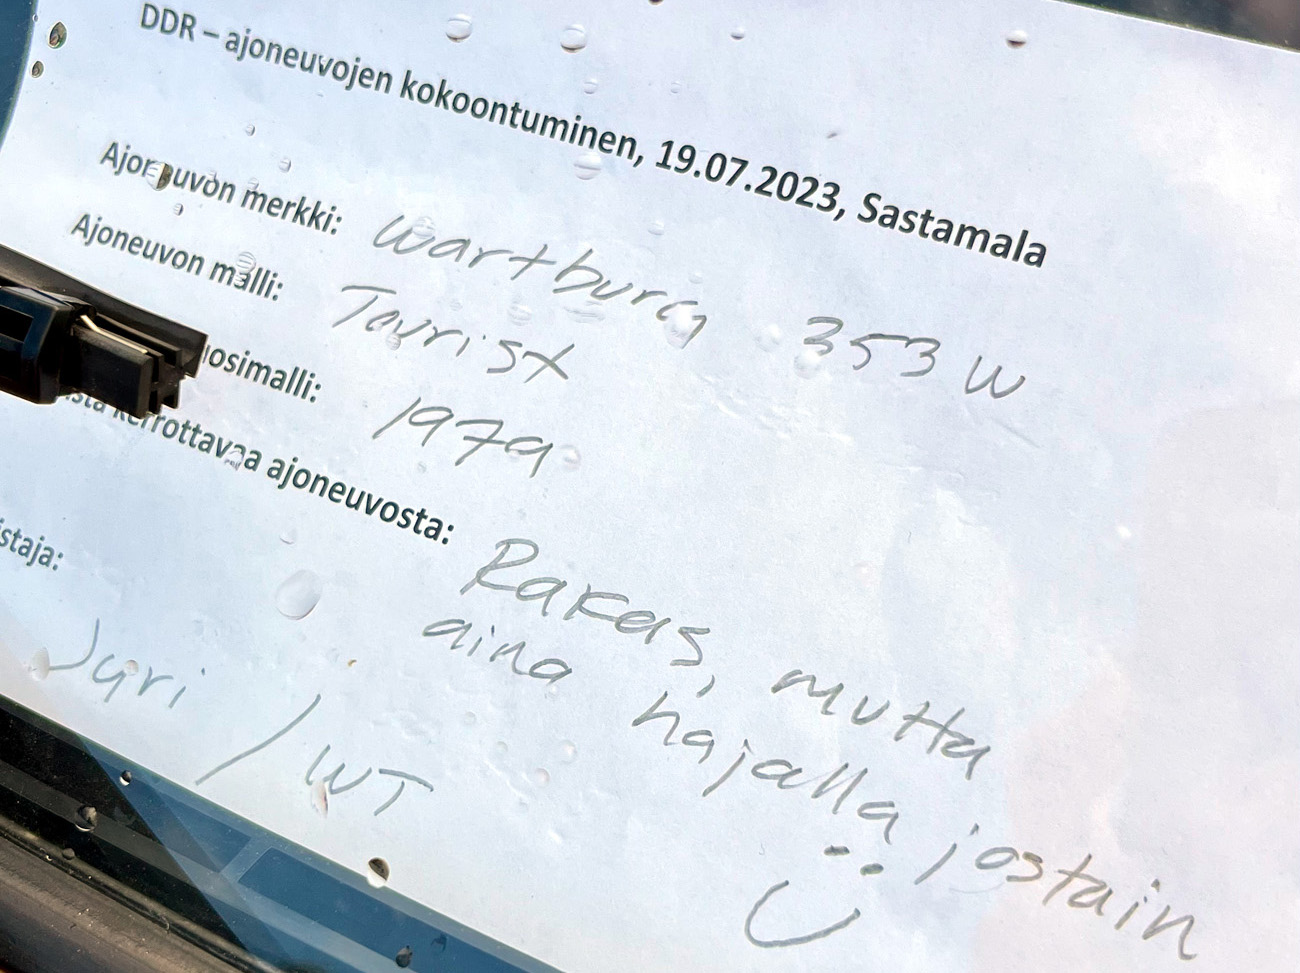 DDR – ajoneuvojen kokoontuminen, 19.07.2023, Sastamala
Ajoneuvon merkki: Wartburg 353 W
Ajoneuvon malli: Tourist
losimalli: 1979
sta kerrottavaa ajoneuvosta: Rakas, mutta
aina hajalla jostain
istaja:
Jyri / WT